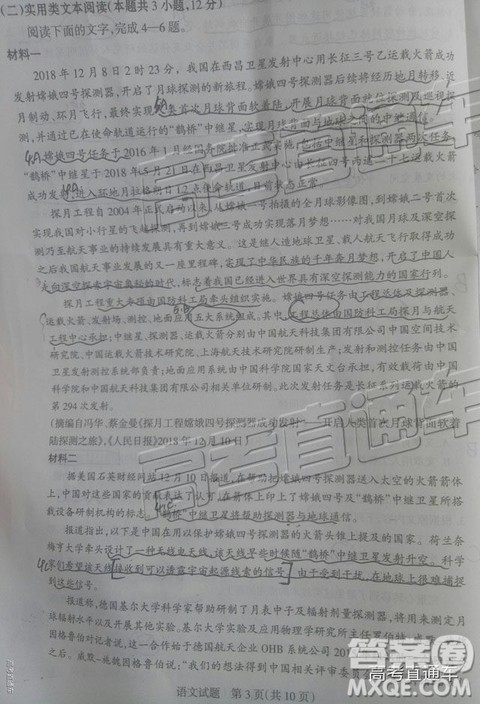 (二)实用类文本阅读(本题共3小题,12分)
阅读下面的文字,完成4—6题。
材料一
2018年12月8日2时23分,我国在西昌卫星发射中心用长征三号乙运载火箭成功
发射嫦娥四号探测器,开启了月球探测的新旅程。嫦娥四号探测器后续将经历地月转移、近
月制动、环月飞行,最终实现人类首次月球背面软着陆,开展月球背面就位探测及巡视探
测,并通过已在使命轨道运行的“鹊桥”中继星,实现月球背面与地球之间的中继通信。
嫦娥四号任务于2016年1月经国务院批准正式实施,包括中继星和探测器两次任务。
“鹊桥”中继星于2018年5月21日在西昌卫星发射中心由长征四号丙运载火箭
成功发射,进入环地月拉格朗日L2点使命轨道,目前状态正常。
探月工程自2004年正式启动以来,从嫦娥一号拍摄的全月球影像图,到嫦娥二号首次
实现我国对小行星的飞越探测,再到嫦娥三号成功实现落月梦想……对我国月球及深空探
测乃至航天事业的持续发展具有重大意义。这是继人造地球卫星、载人航天飞行取得成功
之后我国航天发展的又一座里程碑,实现了中华民族的千年奔月梦想,开启了中国人
走向深空探索宇宙奥秘的时代,标志着我国已经进入世界具有深空探测能力的国家行列。
探月工程重大专项由国防科工局牵头组织实施。嫦娥四号任务由工程总体及探测器、
运载火箭、发射场、测控、地面应用五大系统组成。其中,工程总体由国防科工局探月与航天
工程中心承担;中继星、探测器、运载火箭分别由中国航天科技集团有限公司中国空间技术
研究院、中国运载火箭技术研究院、上海航天技术研究院研制生产;发射和测控任务由中国
卫星发射测控系统部负责组织实施;地面应用系统由中国科学院国家天文台承担,有效载荷由中国
科学院和中国航天科技集团有限公司相关单位研制。此次发射任务是长征系列运载火箭的
第294次发射。
(摘编自冯华、蔡金曼《探月工程嫦娥四号探测器成功发射——开启人类首次月球背面软着
陆探测之旅》,《人民日报》2018年12月10日)
材料二
据美国石英财经网站12月10日报道,在帮助把嫦娥四号探测器送入太空的火箭箭体
上,中国对这些国家的贡献表示了认可。在箭体上印上了嫦娥四号及“鹊桥”中继卫星所搭
载设备研制机构的标志。“鹊桥”中继卫星将帮助探测器与地球通信。
报道指出,以下是中国在用以保护嫦娥四号探测器的火箭头锥上提及的国家。荷兰奈
梅亨大学牵头设计了一种无线电天线,该天线早些时候随“鹊桥”中继卫星发射升空。科学
家们希望该天线接收到可以透露宇宙起源线索的信号,由于受到干扰,在地球上很难捕捉
到这些信号。
报道称,德国基尔大学科学家帮助研制了月表中子及辐射剂量探测器,将用来测定月
球辐射水平以及开展其他实验。基尔大学实验及应用物理学研究所主任罗伯特·威默-施魏
因格鲁伯对记者说,这一合作始于德国航天企业OHB系统公司201
之后。威默-施魏因格鲁伯说:“我们的想法得到中国相关评审委员会
语文试题 第3页(共10页)
高考直通车
答案圈
MXQE.COM
高考直通车